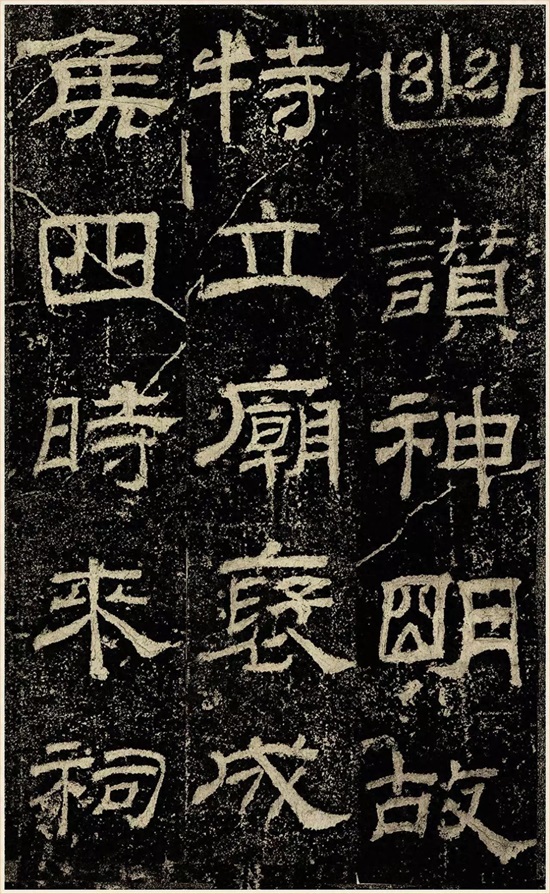 幽讚神朙故
特立廟褒成
矦四時來祠